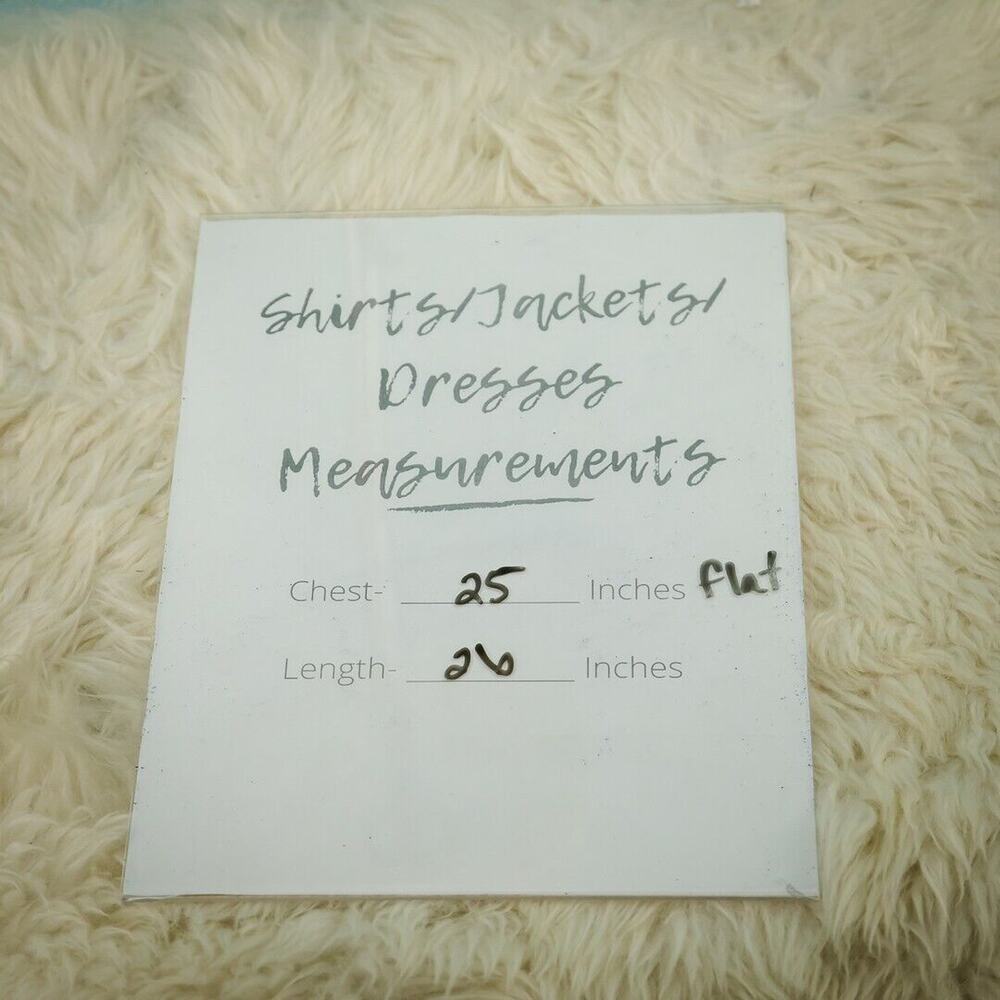 Shirts/Jackets/
Dresses
Measurements
Chest- 25 Inches flat
Length- 26 Inches